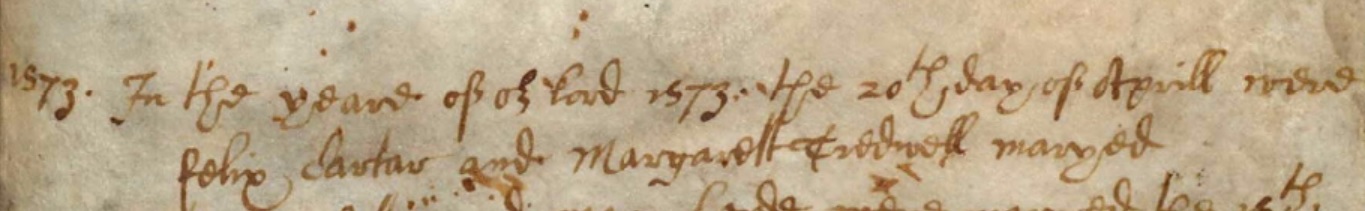 1573. In the yeare of or Lord 1573. the 20th day of Aprill were
felix Cartar and Margarett Tredwell maryed